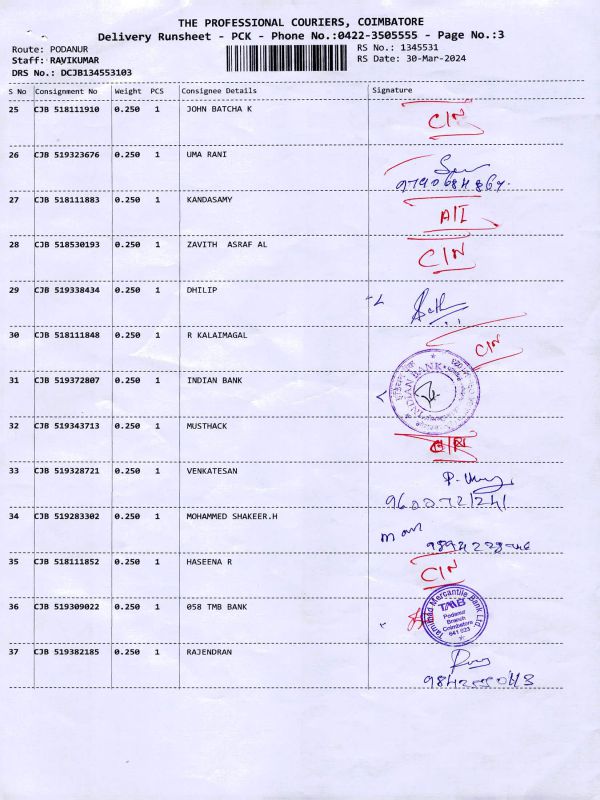 THE PROFESSIONAL COURIERS, COIMBATORE
Delivery Runsheet - PCK - Phone No.:0422-3505555 - Page No.:3
Route: PODANUR RS No.: 1345531
Staff: RAVIKUMAR RS Date: 30-Mar-2024
DRS No.: DCJB134553103
S No Consignment No Weight PCS Consignee Details Signature
25 CJB 518111910 0.250 1 JOHN BATCHA K C/N
26 CJB 519323676 0.250 1 UMA RANI
27 CJB 518111883 0.250 1 KANDASAMY A/I
28 CJB 518530193 0.250 1 ZAVITH ASRAF AL C/N
29 CJB 519338434 0.250 1 DHILIP
30 CJB 518111848 0.250 1 R KALAIMAGAL C/N
31 CJB 519372807 0.250 1 INDIAN BANK INDIAN BANK
32 CJB 519343713 0.250 1 MUSTHACK
33 CJB 519328721 0.250 1 VENKATESAN
34 CJB 519283302 0.250 1 MOHAMMED SHAKEER.H
35 CJB 518111852 0.250 1 HASEENA R C/N
36 CJB 519309022 0.250 1 058 TMB BANK Tamilnad Mercantile Bank Ltd. TMB Podanur Branch Coimbatore 641 023
37 CJB 519382185 0.250 1 RAJENDRAN